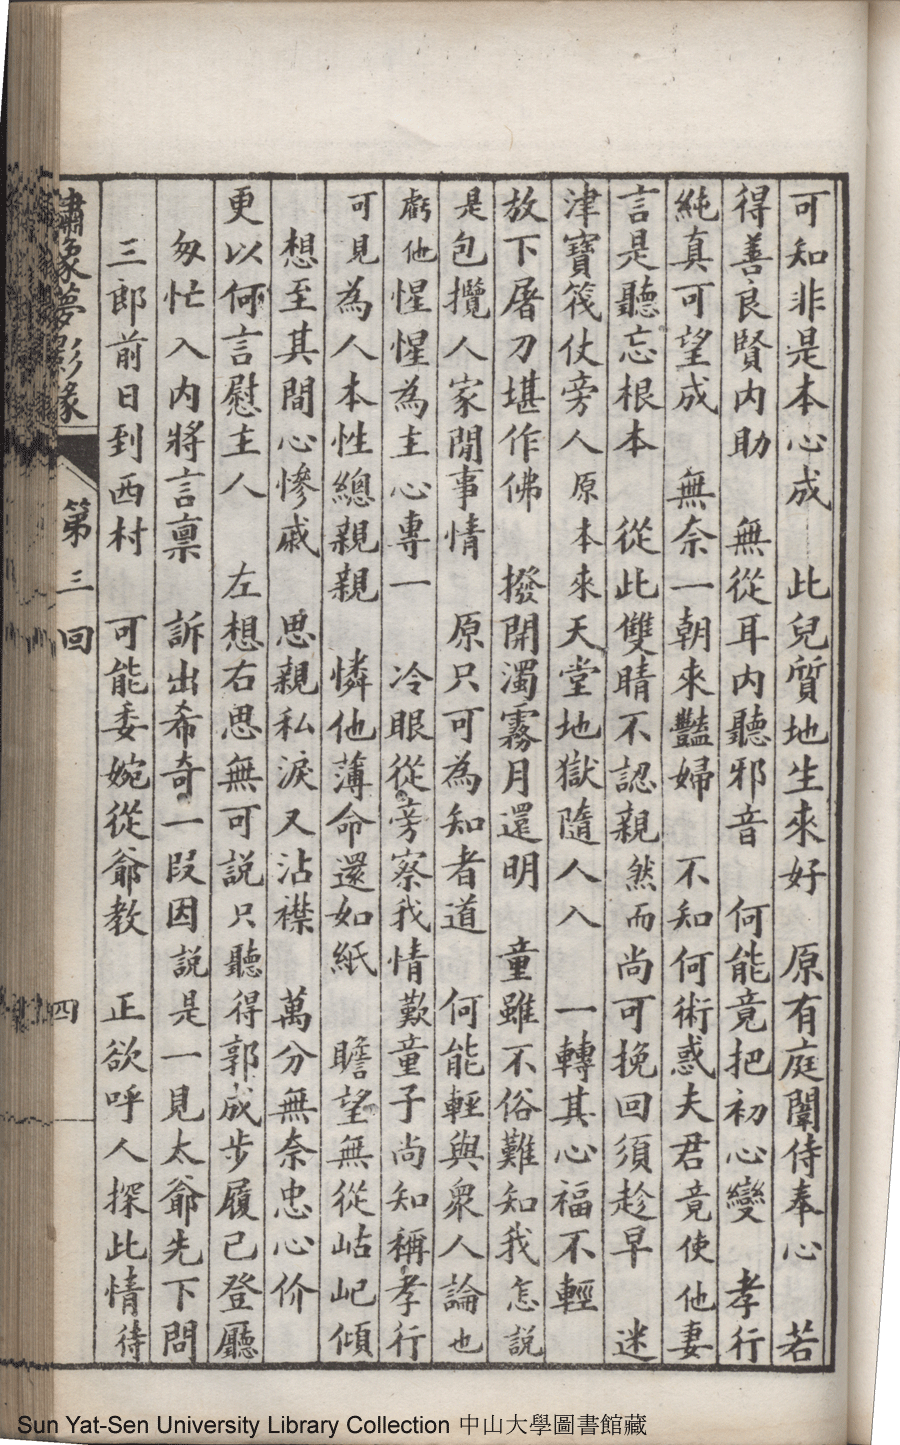 可知非是本心成　此兒質地生來好　原有庭闈侍奉心　若
得善良賢内助　無從耳内聽邪音　何能竟把初心變　孝行
純真可望成　無奈一朝來豔婦　不知何術惑夫君竟使他妻
言是聽忘根本　從此雙睛不認親然而尚可挽回須趁早　迷
津寶筏仗旁人原本來天堂地獄隨人入　一轉其心福不輕
放下屠刀堪作佛　撥開濁霧月還明　童雖不俗難知我怎説
是包攬人家閒事情　原只可為知者道　何能輕與衆人論也
虧他惺惺為主心專一　冷眼從旁察我情歎童子尚知稱孝行
可見為人本性總親親　憐他薄命還如紙　瞻望無從岵屺傾
想至其間心慘戚　思親私淚又沾襟　萬分無奈忠心价
更以何言慰主人　左想右思無可説只聽得郭成步履已登廳
匆忙入内將言禀　訴出希奇一段因説是一見太爺先下問
三郎前日到西村　可能委婉從爺教　正欲呼人探此情待
繡象夢影緣　第三回　四
Sun Yat-Sen University Library Collection 中山大學圖書館藏